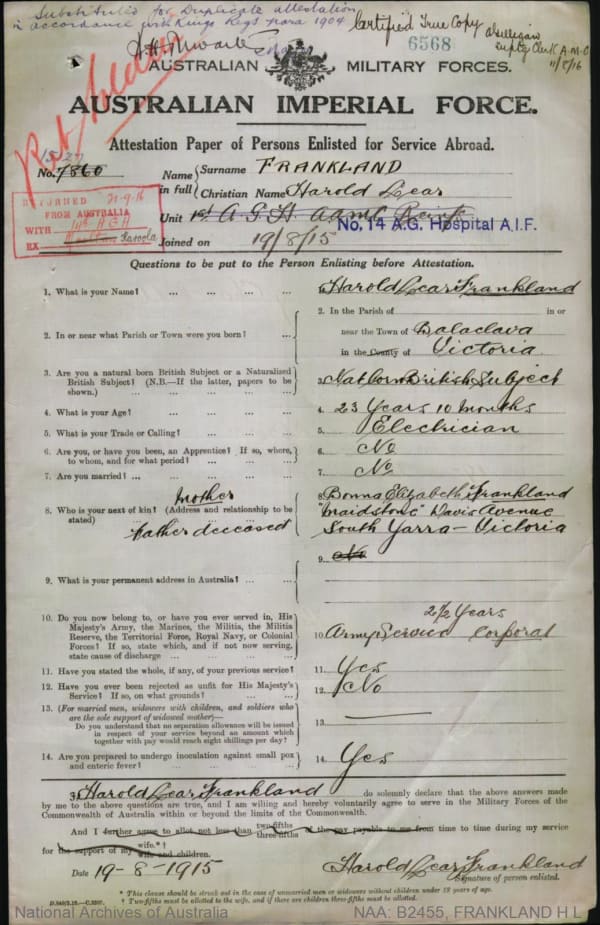 Substituted for Duplicate attestation
in accordance with Kings Regs para 1904
Certified True Copy
11/8/16
6568
AUSTRALIAN MILITARY FORCES.
AUSTRALIAN IMPERIAL FORCE.
Attestation Paper of Persons Enlisted for Service Abroad.
No. 7860
15127
Name in full
Surname FRANKLAND
Christian Name Harold Lear
Unit 1st A G H aamc Reinf
No. 14 A.G. Hospital A.I.F.
Joined on 19/8/15
RETURNED 21-9-16
FROM AUSTRALIA
WITH 14th AGH
EX Karoola
Questions to be put to the Person Enlisting before Attestation.
1. What is your Name? ... ... ... ...
Harold Lear Frankland
2. In or near what Parish or Town were you born? ...
2. In the Parish of in or
near the Town of Balaclava
in the County of Victoria
3. Are you a natural born British Subject or a Naturalised
British Subject? (N.B.—If the latter, papers to be
shown.) ... ... ... ... ...
3. Nat born British Subject
4. What is your Age? ... ... ... ...
4. 23 Years 10 months
5. What is your Trade or Calling? ... ... ...
5. Electrician
6. Are you, or have you been, an Apprentice? If so, where,
to whom, and for what period? ... ... ...
6. No
7. Are you married? ... ... ... ...
7. No
8. Who is your next of kin? (Address and relationship to be
stated) ... ... ...
mother
Father deceased
8. Bonna Elizabeth Frankland
"Maidstone" Davis Avenue
South Yarra - Victoria
9. What is your permanent address in Australia? ... ...
9. No
10. Do you now belong to, or have you ever served in, His
Majesty's Army, the Marines, the Militia, the Militia
Reserve, the Territorial Force, Royal Navy, or Colonial
Forces? If so, state which, and if not now serving,
state cause of discharge ... ... ...
2 1/2 Years
10. Army Service Corporal
11. Have you stated the whole, if any, of your previous service?
11. Yes
12. Have you ever been rejected as unfit for His Majesty's
Service? If so, on what grounds? ... ... ...
12. No
13. (For married men, widowers with children, and soldiers who
are the sole support of widowed mother)—
Do you understand that no separation allowance will be issued
in respect of your service beyond an amount which
together with pay would reach eight shillings per day?
13.
14. Are you prepared to undergo inoculation against small pox
and enteric fever? ... ... ... ...
14. Yes
I, Harold Lear Frankland do solemnly declare that the above answers made
by me to the above questions are true, and I am willing and hereby voluntarily agree to serve in the Military Forces of the
Commonwealth of Australia within or beyond the limits of the Commonwealth.
And I further agree to allot not less than two-fifths three-fifths of the pay payable to me from time to time during my service
for the support of my wife.*† wife and children.
Date 19-8-1915
Harold Lear Frankland
Signature of person enlisted.
* This clause should be struck out in the case of unmarried men or widowers without children under 18 years of age.
† Two-fifths must be allotted to the wife, and if there are children three-fifths must be allotted.
National Archives of Australia
NAA: B2455, FRANKLAND H L